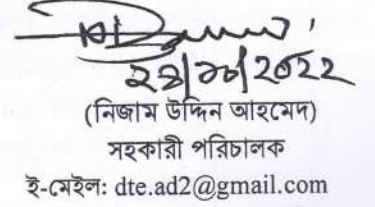 (নিজাম উদ্দিন আহমেদ)
সহকারী পরিচালক
ই-মেইল: dte.ad2@gmail.com